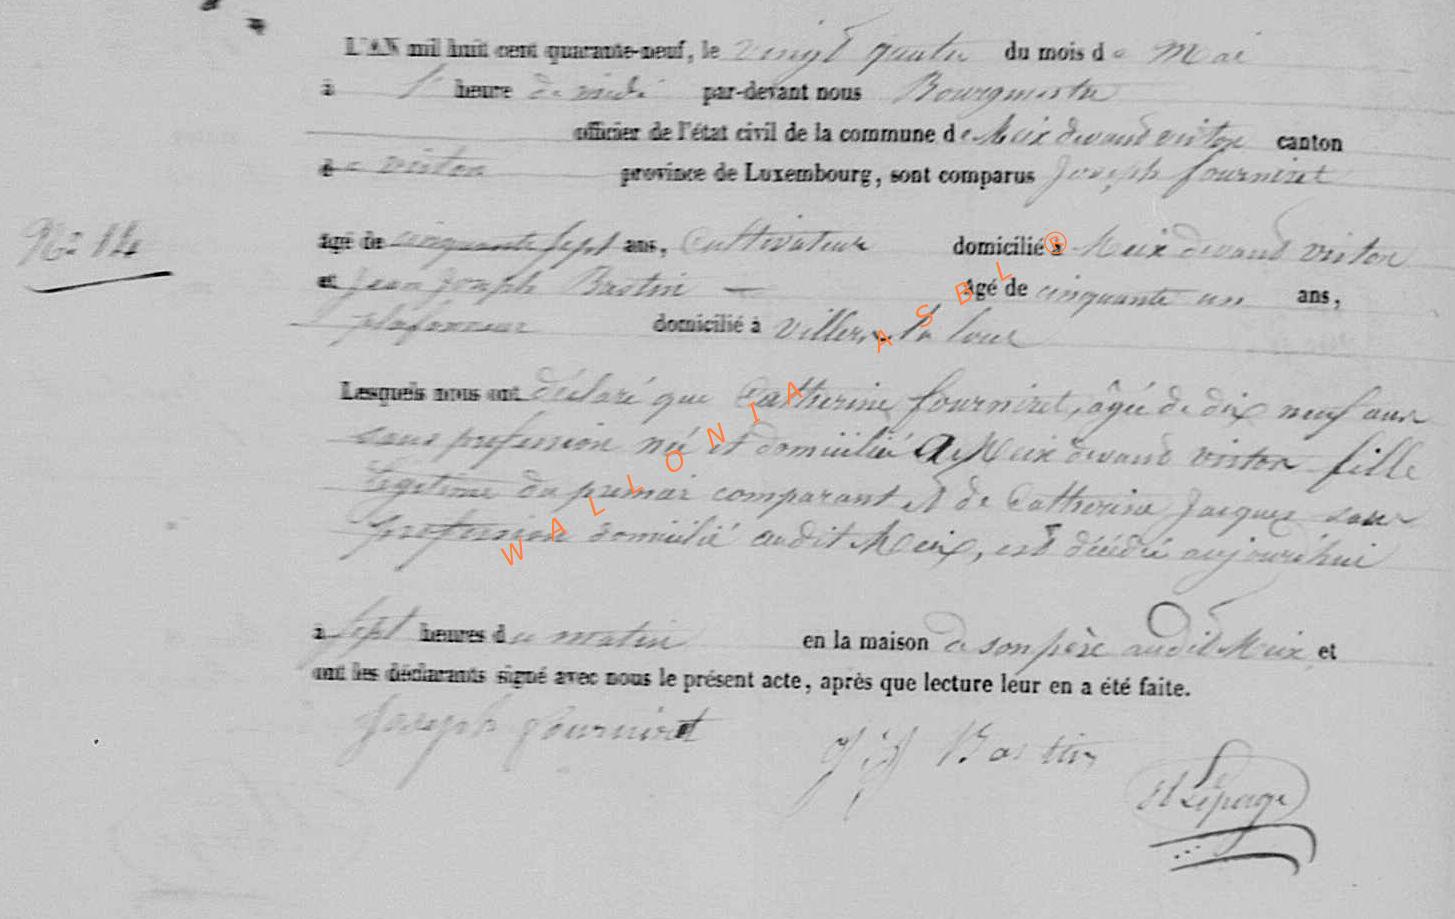 L'AN mil huit cent quarante-neuf, le vingt quatre du mois de Mai
à 1 heure de midi par-devant nous Bourgmestre
officier de l'état civil de la commune de Meix devant virton canton
de virton province de Luxembourg, sont comparus Joseph fourniret
No 14
âgé de cinquante sept ans, Cultivateur domicilié à Meix devant virton
et Jean Joseph Bastin — âgé de cinquante un ans,
plafonneur domicilié à Villers la loue
Lesquels nous ont déclaré que Catherine fourniret, âgée de dix neuf ans
sans profession né et domicilié à Meix devant virton fille
legitime du premier comparant et de Catherine Jacques sans
profession domicilié audit Meix, est décédé aujourd'hui
à sept heures du matin en la maison de son père audit Meix et
ont les déclarants signé avec nous le présent acte, après que lecture leur en a été faite.
Joseph fourniret
J J Bastin
Lepage
WALLONIA ASBL ®